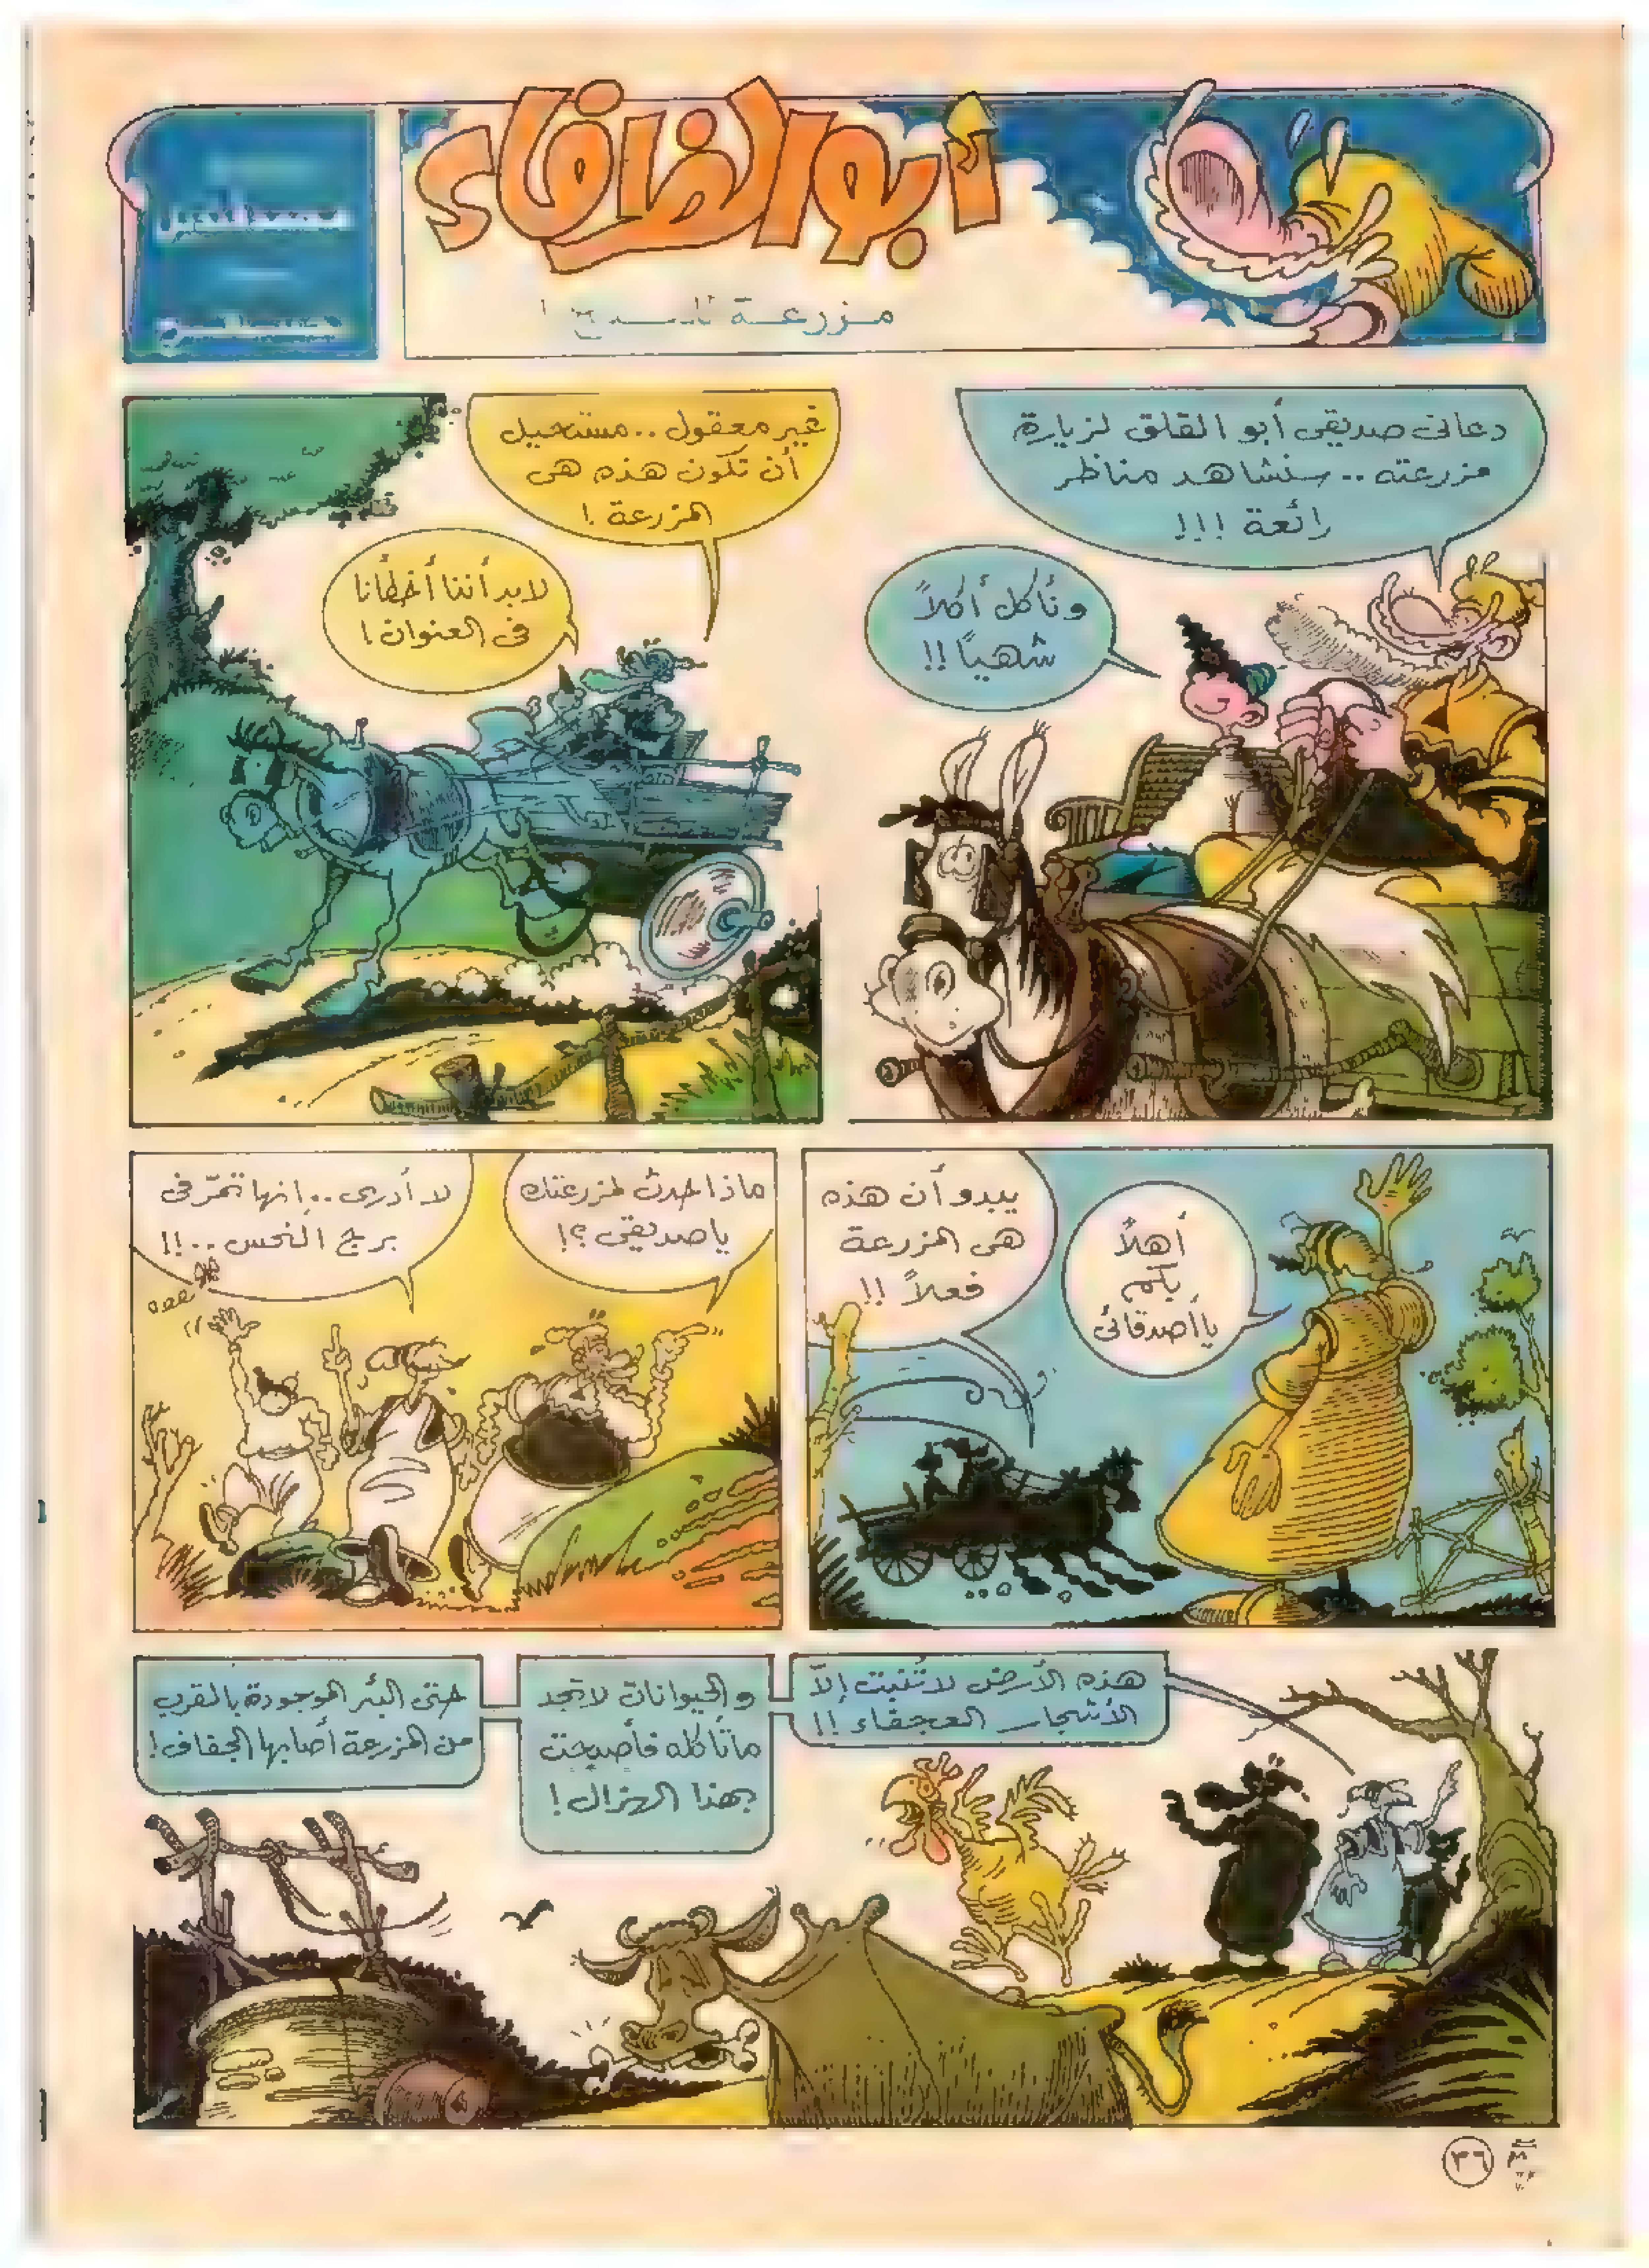 أبو الظرفاء
مزرعة
دعانى صديقى أبو القلق لزيارة
مزرعته .. سنشاهد مناظر
رائعة !!!
ونأكل أكلاً
شهياً !!
غير معقول .. مستحيل
أن تكون هذه هى
المزرعة !
لابد أننا أخطأنا
فى العنوان !
أهلاً
بكم
يا أصدقائى
يبدو أن هذه
هى المزرعة
فعلاً !!
ماذا حدث لمزرعتك
يا صديقى ؟!
لا أدرى .. إنها تمرّ فى
برج النحس .. !!
هذه الأرض لا تنبت إلاّ
الأشجار العجفاء !!
والحيوانات لا تجد
ما تأكله فأصبحت
بهذا الهزال !
حتى البئر الموجودة بالقرب
من المزرعة أصابها الجفاف !
٣٦